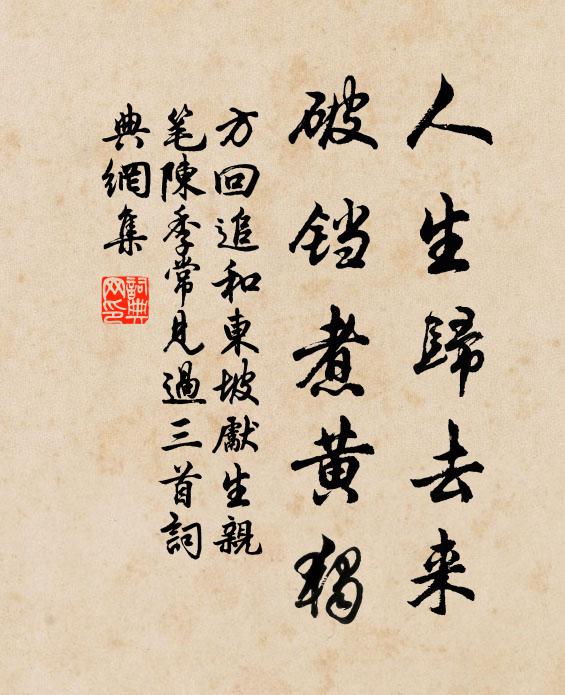 人生歸去来
破铛煮黄独
方回追和東坡獻生親
笔陳季常見過三首詞
典網集
詞典网印